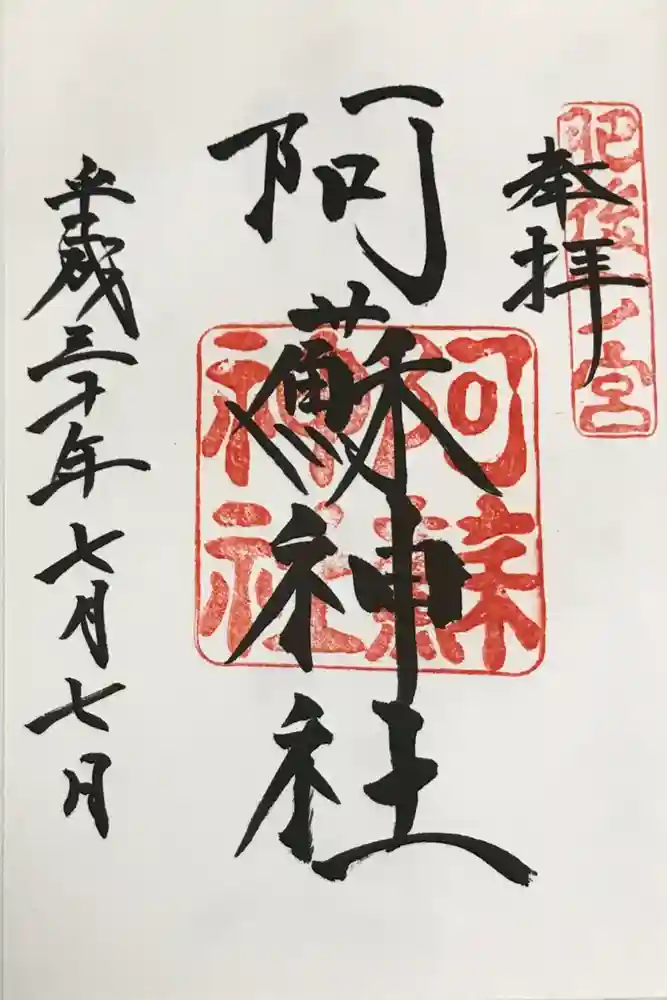 肥後一ノ宮
奉拝
阿蘇神社
阿蘇
神社
平成三十年七月七日